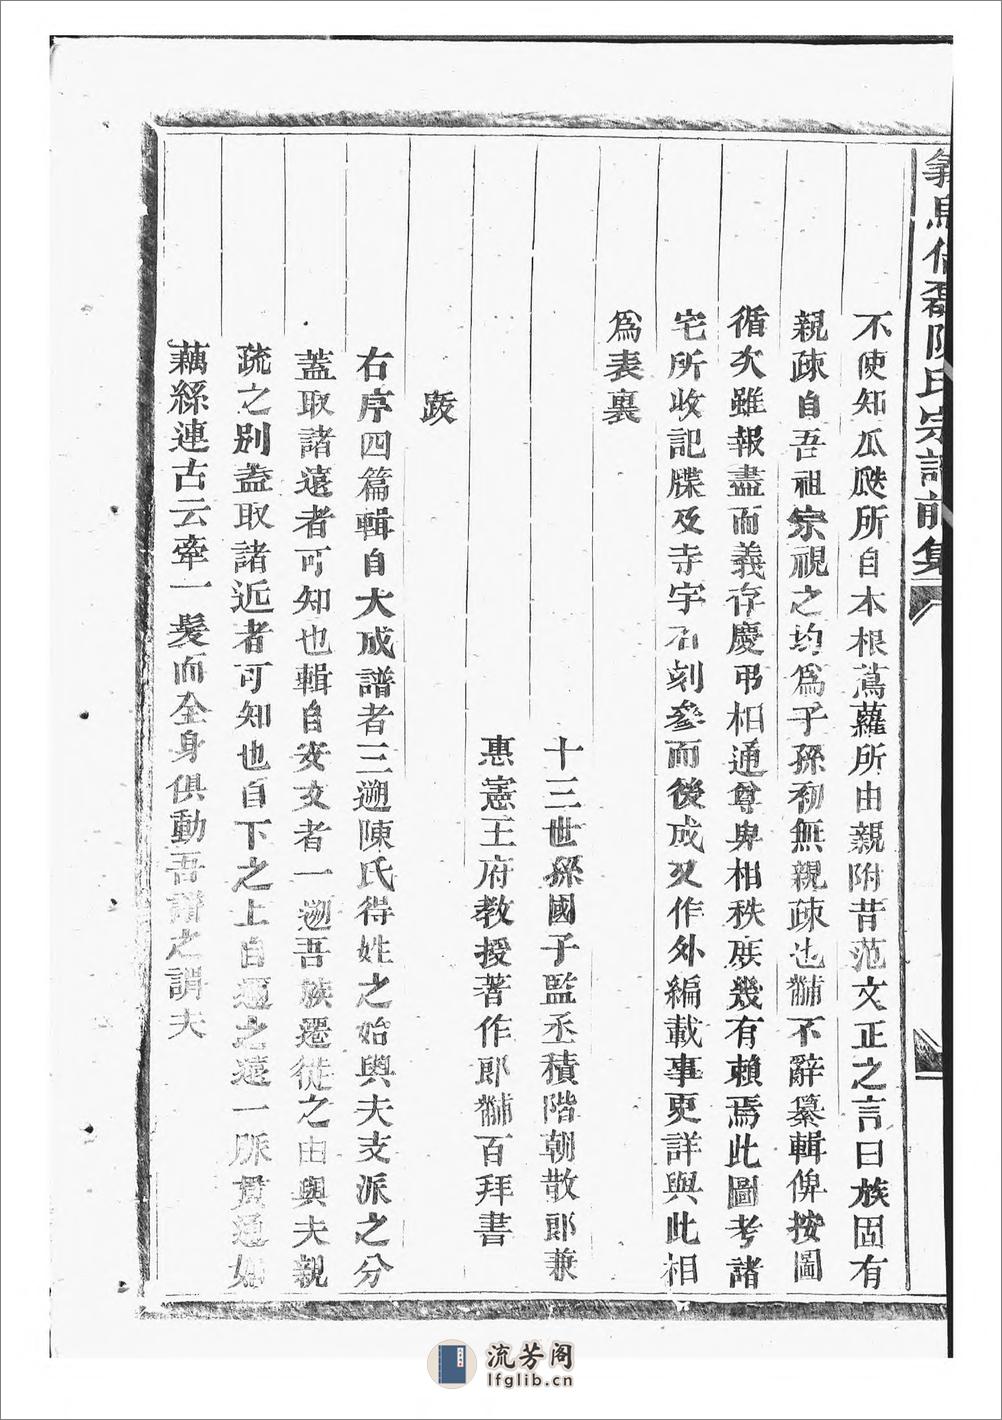 義烏倍磊陳氏宗譜前集
不使知瓜瓞所自本根蔦蘿所由親附昔范文正之言曰族固有
親疎自吾祖宗視之均爲子孫初無親疎也黼不辭纂輯俾按圖
循次雖報盡而義存慶弔相通尊卑相秩庶幾有賴焉此圖考諸
宅所收記牒及寺宇石刻參而後成又作外編載事更詳與此相
爲表裏
十三世孫國子監丞積階朝散郎兼
惠憲王府教授著作郎黼百拜書
跋
右序四篇輯自大成譜者三遡陳氏得姓之始與夫支派之分
蓋取諸遠者可知也輯自安文者一遡吾族遷徙之由與夫親
疏之別蓋取諸近者可知也自下之上自邇之遠一脈貫通如
藕絲連古云牽一髮而全身俱動吾譜之謂夫
流芳阁
lfglib.cn